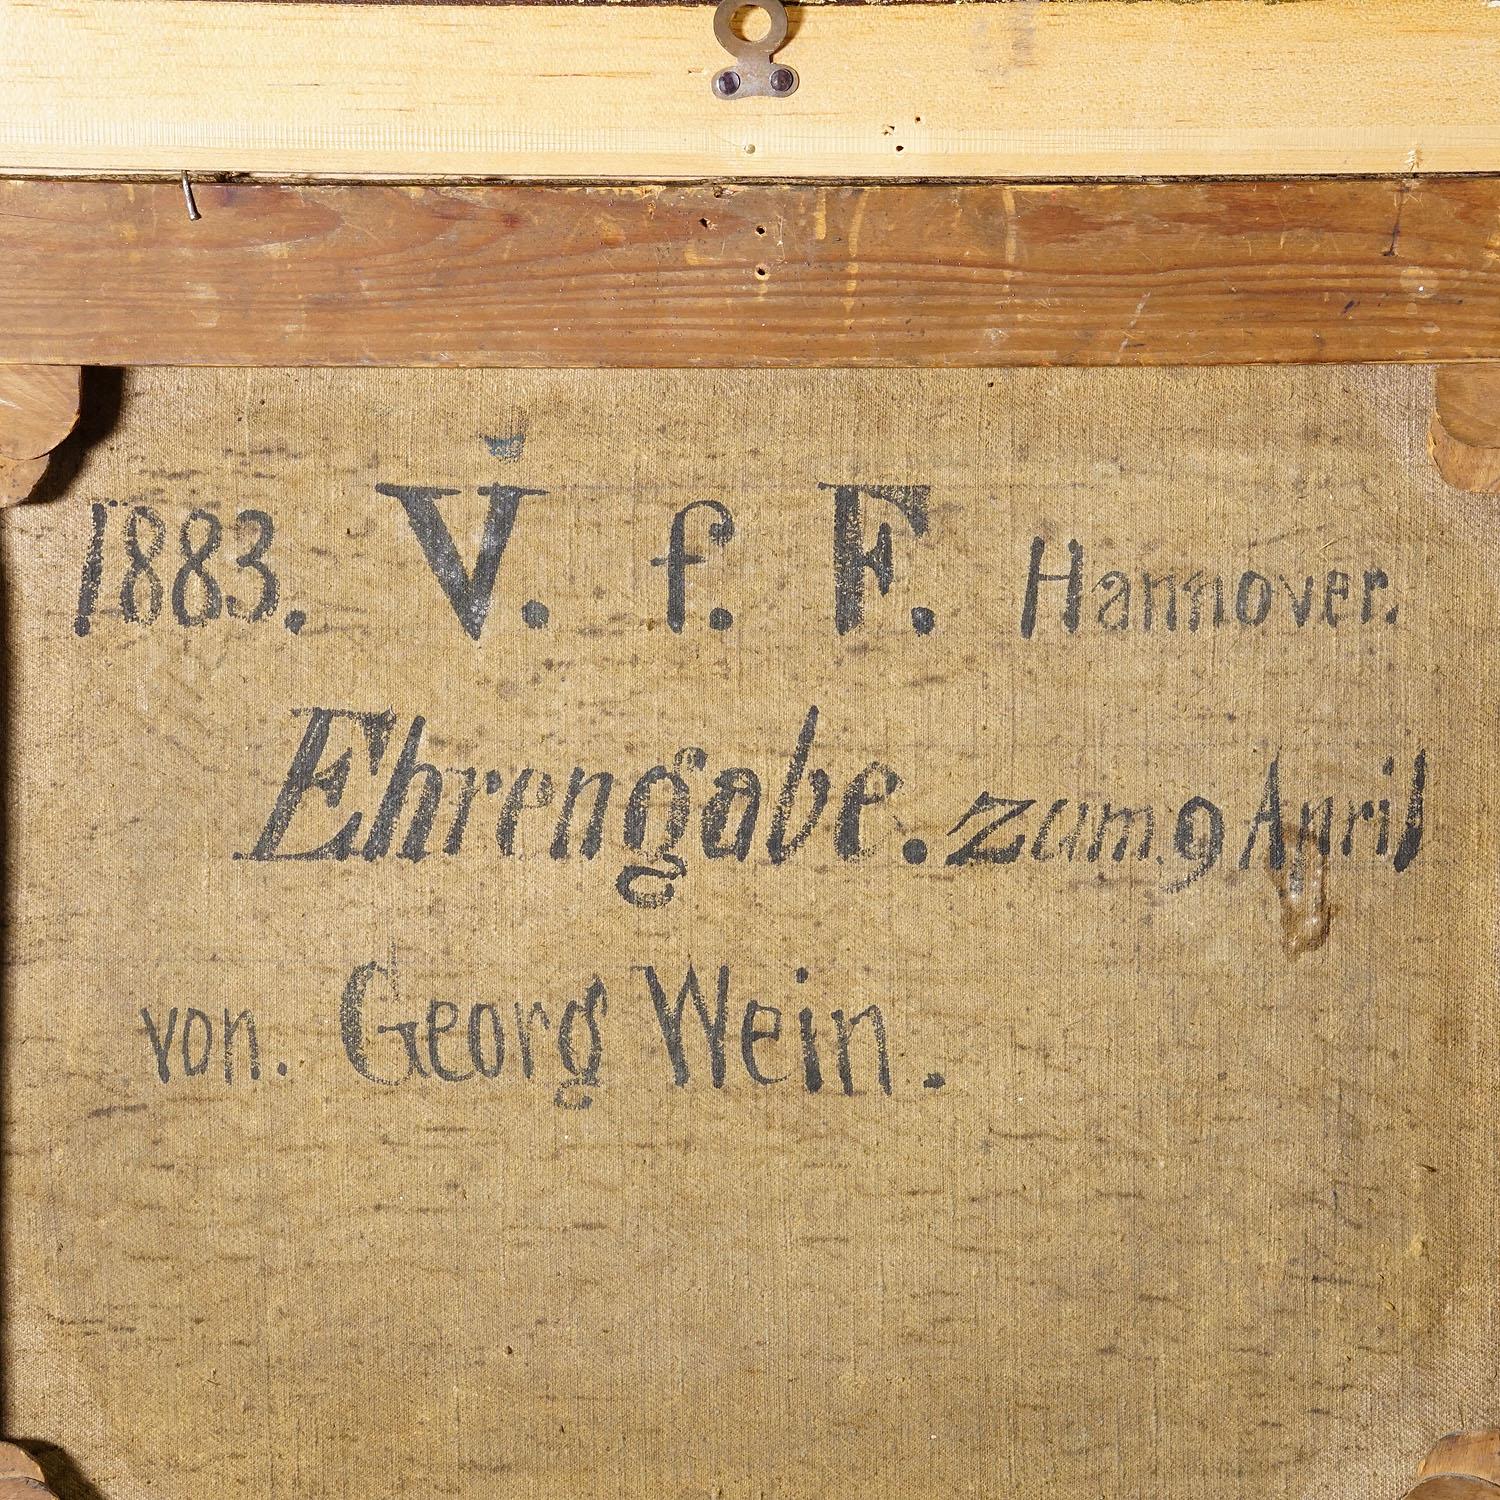 1883. V. f. F. Hannover.
Ehrengabe. zum. 9 April
von. Georg Wein.